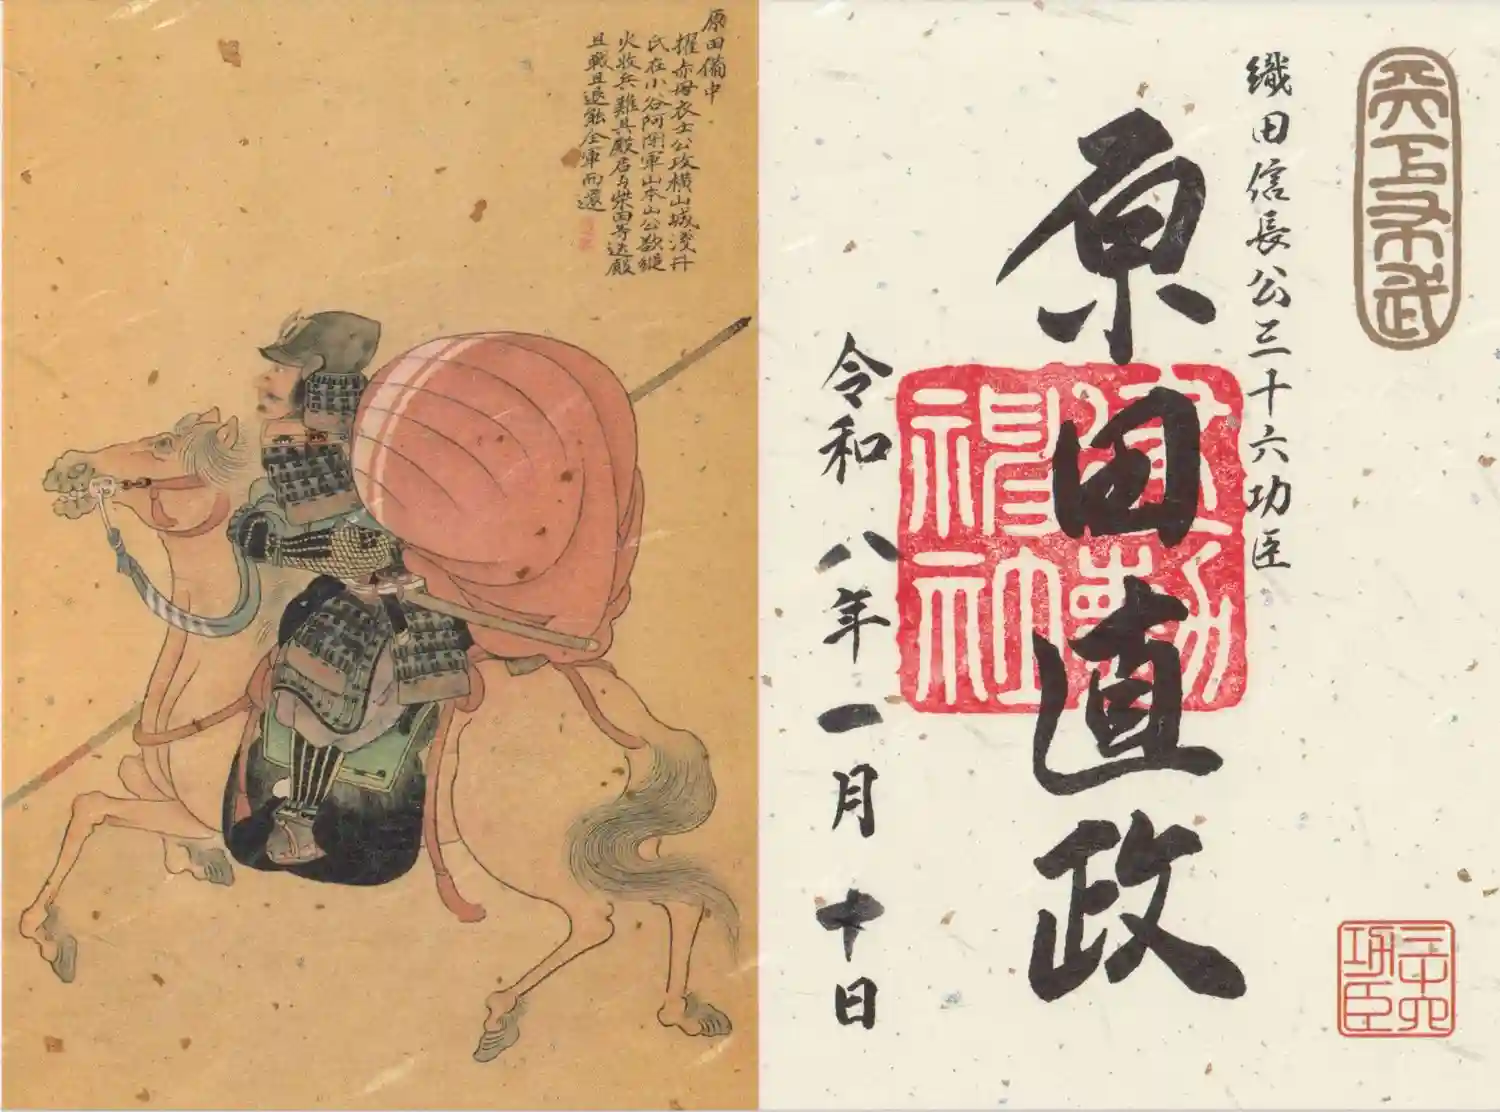 天下布武
織田信長公三十六功臣
原田直政
建勲神社
令和八年一月十日
三十六功臣
原田備中
擢赤母衣士公攻横山城淺井
氏在小谷阿閉軍山本山公欲縦
火收兵難其殿君与柴田等送殿
且戰且退能全軍而還